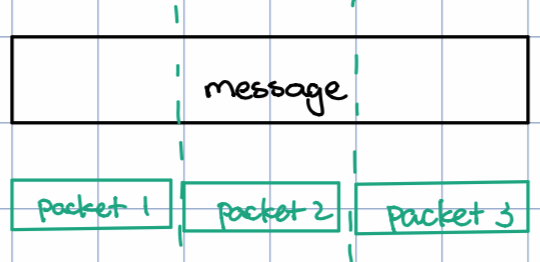 message
packet 1 packet 2 packet 3